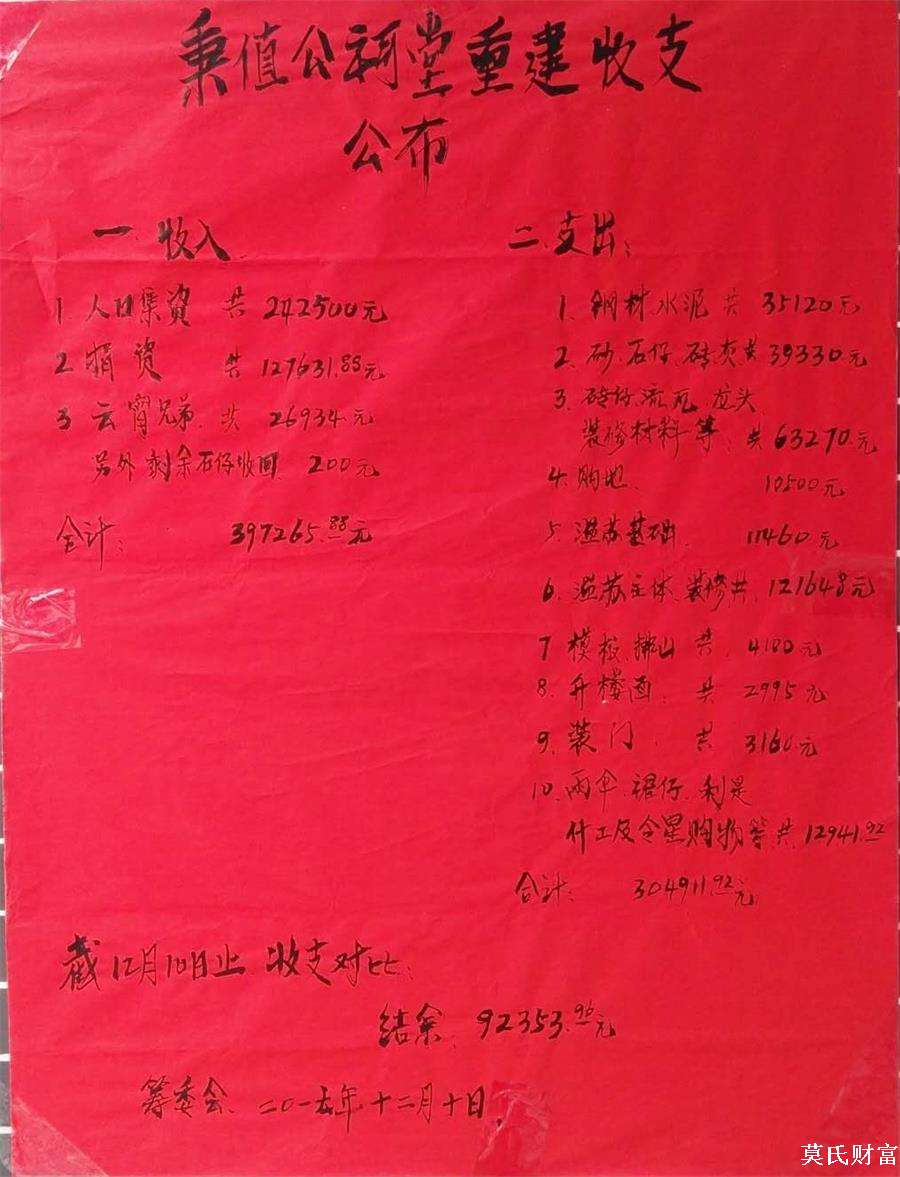 秉值公祠堂重建收支
公布
一、收入
1. 人口集資 共 242500元
2. 捐資 共 127631.88元
3 云霄兄弟、共 26934元
另外剩余石仔收回 200元
合计: 397265.88元
二、支出:
1. 钢材水泥共 35120元
2. 砂、石仔、砖灰共39330元
3. 砖仔、流瓦、龙头、
装修材料等、共63270元
4. 购地、 10500元
5. 温苏基础、 11460元
6. 温苏主体、装修共、121648元
7 模板、拂山 共、4180元
8. 升楼面、共 2995元
9. 装门、共 3160元
10. 雨伞、裙仔、利是
什工及令星购物等共、12941.92
合计: 304911.92元
截12月10日止 收支对比:
结余、92353.96元
筹委会、二0一五年十二月十日
莫氏财富